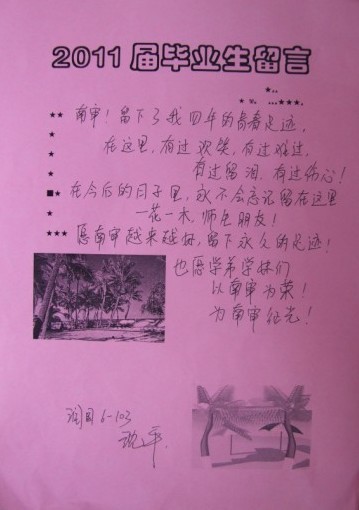 2011届毕业生留言
南审！留下了我四年的青春足迹，
在这里，有过欢笑，有过难过，
有过留泪，有过伤心！
在今后的日子里，永不会忘记留在这里
一花一木，师兄朋友！
愿南审越来越好，留下永久的足迹！
也愿学弟学妹们
以南审为荣！
为南审征光！
润园6-103